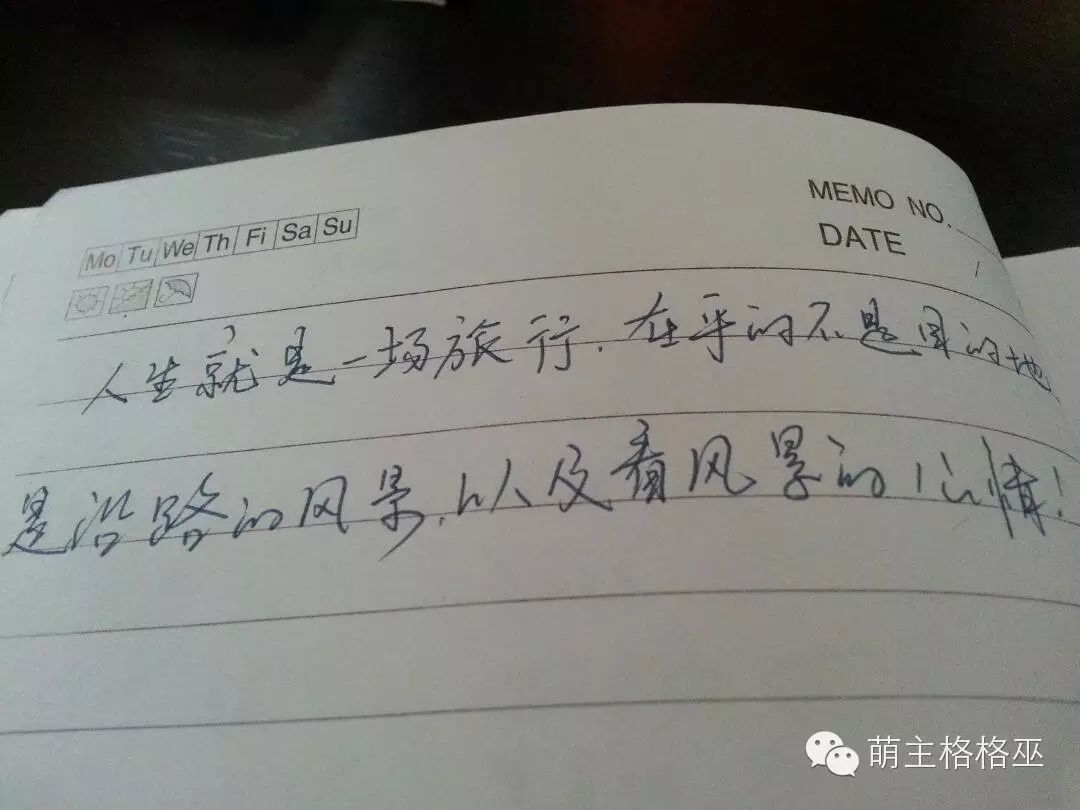 MEMO NO.
Mo Tu We Th Fi Sa Su
DATE
人生就是一场旅行.在乎的不是目的地
是沿路的风景.以及看风景的心情!
萌主格格巫